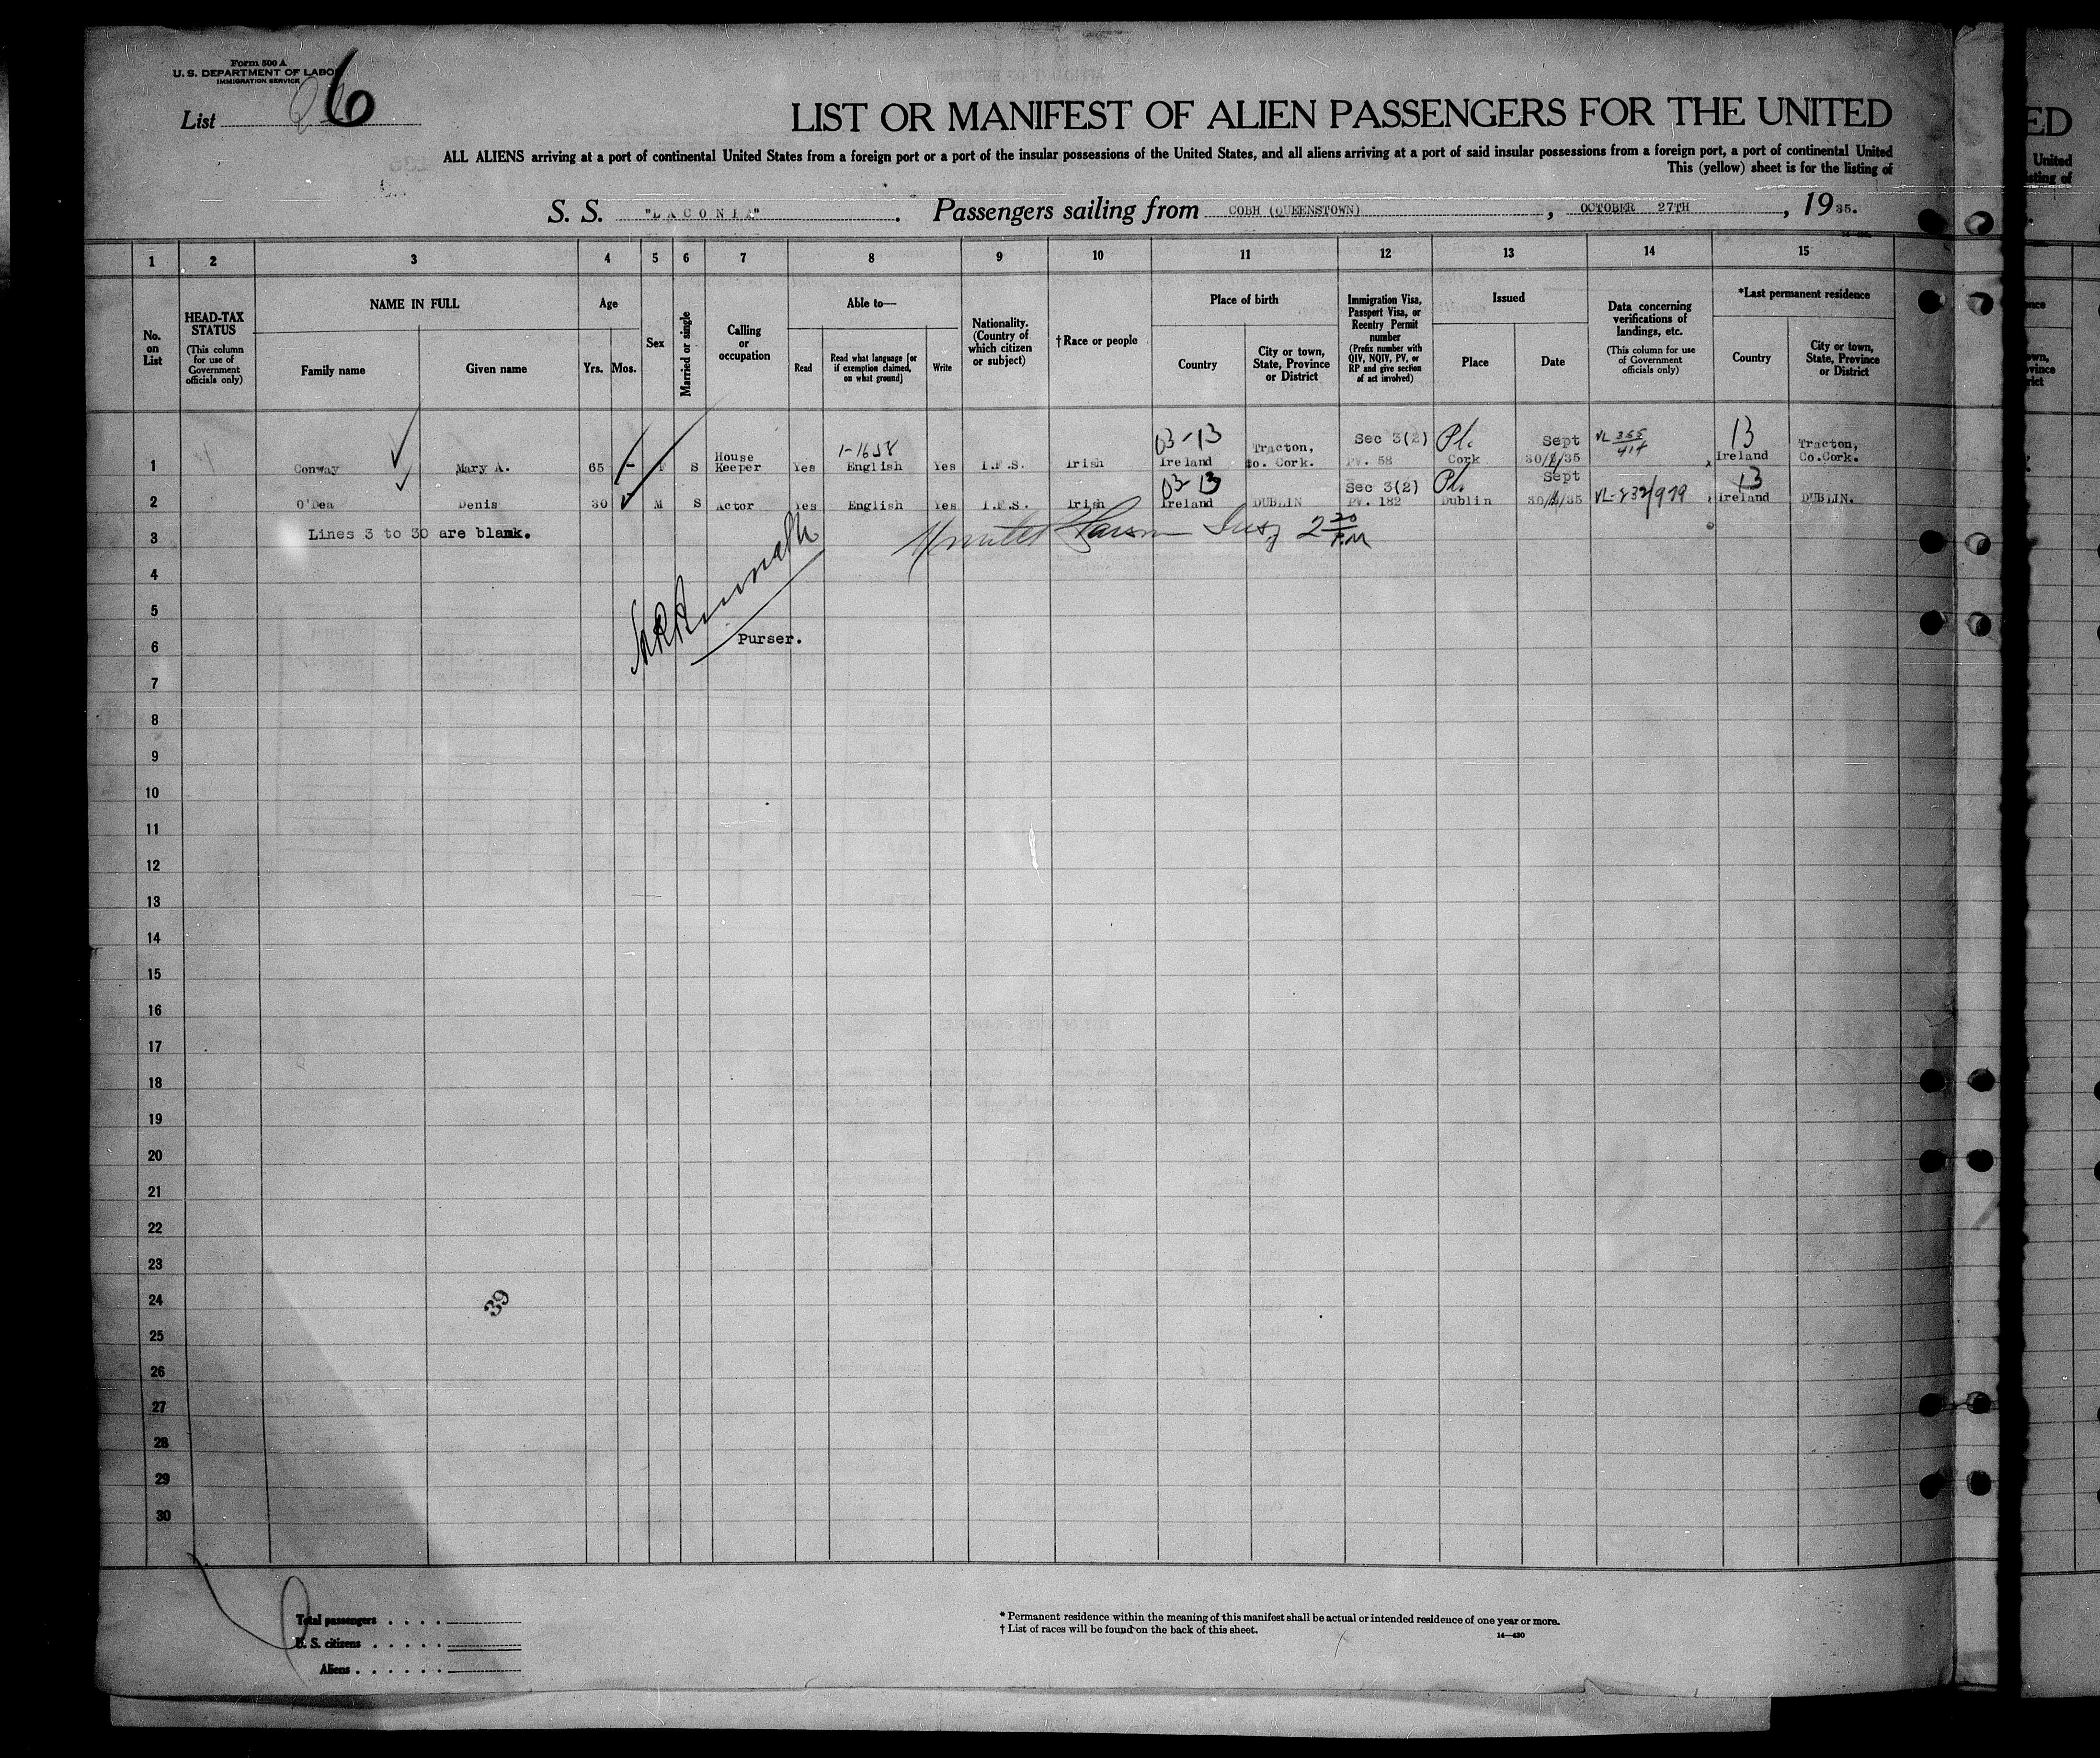 Form 500 A
U. S. DEPARTMENT OF LABOR
IMMIGRATION SERVICE
List 6
LIST OR MANIFEST OF ALIEN PASSENGERS FOR THE UNITED
ALL ALIENS arriving at a port of continental United States from a foreign port or a port of the insular possessions of the United States, and all aliens arriving at a port of said insular possessions from a foreign port, a port of continental United
This (yellow) sheet is for the listing of
S. S. "LACONIA". Passengers sailing from COBH (QUEENSTOWN), OCTOBER 27TH, 1935.
1 2 3 4 5 6 7 8 9 10 11 12 13 14 15
No. on List
HEAD-TAX STATUS (This column for use of Government officials only)
NAME IN FULL
Family name Given name
Age
Yrs. Mos.
Sex
Married or single
Calling or occupation
Able to—
Read
Read what language [or if exemption claimed, on what ground]
Write
Nationality. (Country of which citizen or subject)
†Race or people
Place of birth
Country
City or town, State, Province or District
Immigration Visa, Passport Visa, or Reentry Permit number (Prefix number with QIV, NQIV, PV, or RP and give section of act involved)
Issued
Place Date
Data concerning verifications of landings, etc. (This column for use of Government officials only)
*Last permanent residence
Country
City or town, State, Province or District
1 Conway Mary A. 65 - F S House Keeper Yes 1-1658 English Yes I.F.S. Irish 03-13 Ireland Tracton, Co. Cork. Sec 3(2) PV. 58 Pl. Cork Sept 30/35 VL 355/414 13 Ireland Tracton, Co.Cork.
2 O'Dea Denis 30 M S Actor Yes English Yes I.F.S. Irish 03-13 Ireland DUBLIN Sec 3(2) PV. 182 Pl. Dublin Sept 30/35 VL-832/979 13 Ireland DUBLIN.
3 Lines 3 to 30 are blank. Insp 2 30 P.M
4
5
6 Purser.
7
8
9
10
11
12
13
14
15
16
17
18
19
20
21
22
23
24
39
25
26
27
28
29
30
Total passengers . . . .
U. S. citizens . . . . .
Aliens . . . . . .
* Permanent residence within the meaning of this manifest shall be actual or intended residence of one year or more.
† List of races will be found on the back of this sheet.
14—430
ED
United
isting of